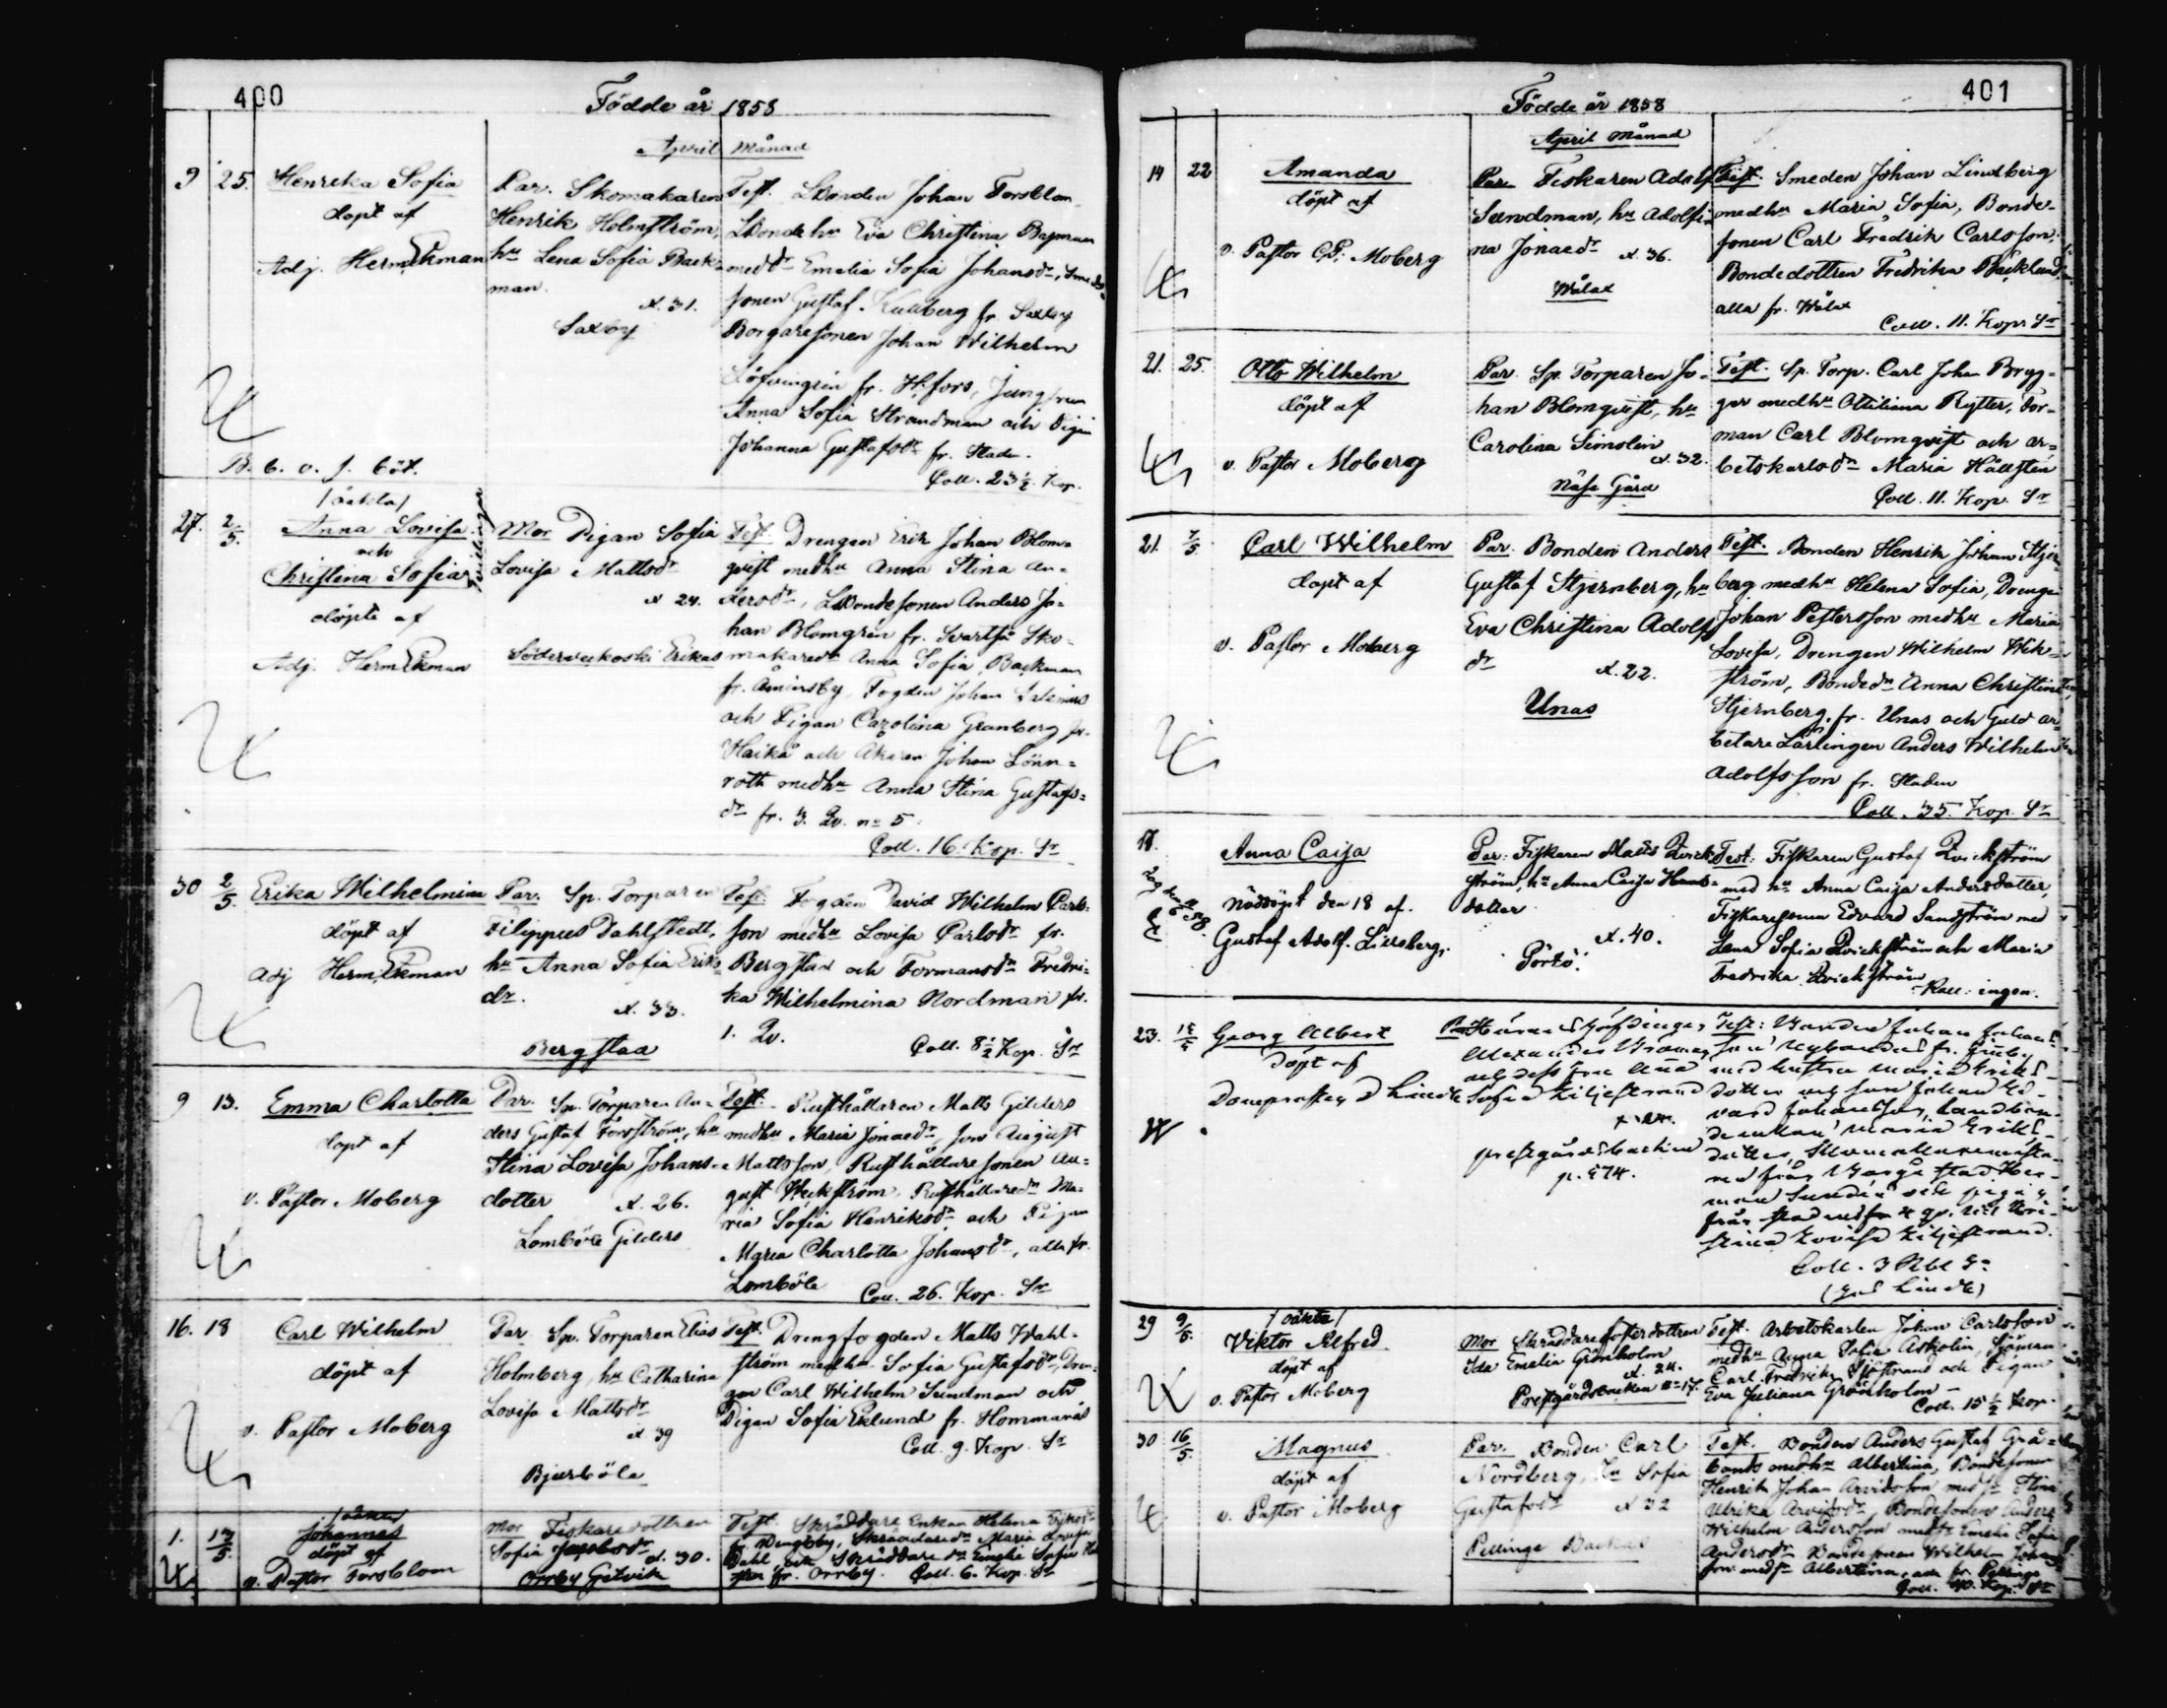 400
Födde år 1858
April Månad
9 25. Henrika Sofia
döpt af
Adj. Herm. Ekman
B. b. v. f. böt.
Par. Skomakaren
Henrik Holmström,
hu Lena Sofia Back-
man.
x. 31.
Saxby
Test. LBonden Johan Forsblom
LBonde hu Eva Christina
med dr Emelia Sofia Johansdr,
sonen Gustaf Kullberg fr. Saxby
Borgaresonen Johan Wilhelm
Löfvingrén fr. H:fors, Jungfrun
Anna Sofia Strandman och Pigan
Johanna Gustafsdr fr. Staden.
Coll. 23 ½ Kop.
27. 2/5. /oäkta/
Anna Lovisa
och
Christina Sofia
Tvillingar
döpte af
Adj. Herm Ekman
Mor Pigan Sofia
Lovisa Mattsdr
x 24.
Söderveckoski Erikas
Test. Drengen Erik Johan Blom-
qvist medhu Anna Stina An-
dersdr, LBondesonen Anders Jo-
han Blomgrén fr. Svartså Sko-
makaredr Anna Sofia Backman
fr. Aminsby, Fogden Johan
och Pigan Carolina Granberg fr.
Haikå och Åkaren Johan Lönn-
roth medhu Anna Stina Gustafs-
dr fr. 3. Qv. no 5.
Coll. 16. Kop. Sr
30 2/5. Erika Wilhelmina
döpt af
Adj Herm. Ekman
Par. Sp. Torparen
Filippus Dahlstedt,
hu Anna Sofia Eriks-
dr.
x. 33.
Bergstad
Test. Fogden David Wilhelm Carls-
son medhu Lovisa Carlsdr fr.
Bergstad och Formansdn Fredri-
ka Wilhelmina Nordman fr.
1. Qv.
Coll. 8 ½ Kop. Sr
9 13. Emma Charlotta
döpt af
v. Pastor Moberg
Par. Sp. Torparen An-
ders Gustaf Forsström, hu
Stina Lovisa Johans-
dotter x. 26.
Lomböle Gilders
Test. Rusthållaren Matts Gilders
medhu Maria Jonaedr, son August
Mattsson, Rusthållaresonen Au-
gust Weckström, Rusthållaredn Ma-
ria Sofia Henriksdr och Pigan
Maria Charlotta Johansdr, alla fr.
Lomböle Coll. 26. Kop. Sr
16. 18 Carl Wilhelm
döpt af
v. Pastor Moberg
Par. Sp. Torparen Elias
Holmberg, hu Catharina
Lovisa Mattsdr
x. 39
Bjurböle
Test. Drengfogden Matts Wahl-
ström medhu Sofia Gustafsdr, Dren-
gen Carl Wilhelm Sundman och
Pigan Sofia Eklund fr. Hommanäs
Coll. 9. Kop. Sr
1. 13/5.
Johannes
döpt af
v. Pastor Forsblom
Mor Fiskaredottren
Sofia Jacobsdr x. 30.
Orrby Getvik
Test. Skräddare Enkan Helena
fr. Wengby, Skräddaredn Maria Lovisa
Dahl och Skräddare dn Emelie Sofie
fr. Orrby. Coll. 6. Kop. Sr
401
Födde år 1858
April Månad
14 22 Amanda
döpt af
v. Pastor C.P. Moberg
Par. Fiskaren Adolf
Sundman, hu Adolfi-
na Jonaedr x. 36.
Wålax
Test. Smeden Johan Lindberg
medhu Maria Sofia, Bonde-
sonen Carl Fredrik Carlsson,
Bondedottren Fredrika Bäcklund
alla fr. Wålax
Coll. 11. Kop. Sr
21. 25. Otto Wilhelm
döpt af
v. Pastor Moberg
Par. Sp. Torparen Jo-
han Blomqvist, hu
Carolina Simolin
x. 32.
Näse Gård
Test. Sp. Torp. Carl Johan Bryg-
ger medhu Ottiliana Rytter, For-
man Carl Blomqvist och ar-
betskarlsdn Maria Hällstén
Coll. 11. Kop. Sr
21. 7/5 Carl Wilhelm
döpt af
v. Pastor Moberg
Par. Bonden Anders
Gustaf Stjernberg, hu
Eva Christina Adolfs
dr x. 22.
Unas
Test. Bonden Henrik Johan Stjern-
berg medhu Helena Sofia, Drengen
Johan Pettersson medhu Maria
Lovisa, Drengen Wilhelm Wik-
ström, Bondedn Anna Christina
Stjernberg, fr. Unas och Guld ar-
betare Lärlingen Anders Wilhelm
Adolfsson fr. Staden
Coll. 35. Kop. Sr
18.
Anna Caisa
Nöddöpt den 18 af.
Gustaf Adolf
Par: Fiskaren Matts Qvick-
ström, hu Anna Caisa
dotter
x. 40.
Pörtö.
Test: Fiskaren Gustaf Qvickström
med hu Anna Caisa Andersdotter,
Fiskaresonen Edvard Sandström med
Lena Sofia Qvickström och Maria
Fredrika Qvickström
Koll: ingen.
23. Georg Albert
Döpt af
Domprosten D Linde
Par: Häradshöfdingen
Alexander
och dess fru Lina
Sofia Liljestrand
prestgårdsbacken
p. 474.
Test: Bonden Johan Johans-
son
med hustru Maria Eriks-
dotter och son Johan Ed-
vard Johansson,
Maria Eriks-
dotter,
från Borgå stad Her-
man Sundén och piga
från staden 4 qv.
stina Lovisa Liljestrand.
Coll. 3 Rbl Sr
(Linde)
29 9/5. /oäkta/
Viktor Alfred
döpt af
v. Pastor Moberg
Mor Skräddare fosterdottren
Ida Emelia Grönholm
x. 24.
Prestgårdsbacken no 17.
Test. Arbetskarlen Johan Carlsson
medhu Anna Sofia Askolin, Sjöman
Carl Fredrik Sjöstrand och Pigan
Eva Juliana Grönholm
Coll. 15 ½ Kop.
30 16/5. Magnus
döpt af
v. Pastor Moberg
Par. Bonden Carl
Nordberg, hu Sofia
Gustafsdr x 32
Pellinge
Test. Bonden Anders Gustaf
medhu Albertina, Bondesonen
Henrik Johan Arvidsson med sr Stina
Ulrika Arvidsdr Bondesonen Anders
Wilhelm Andersson med sr Emelie Sofia
Andersdr Bondesonen Wilhelm
son med sr Albertina alla fr. Pellinge
Coll. 40. Kop. Sr